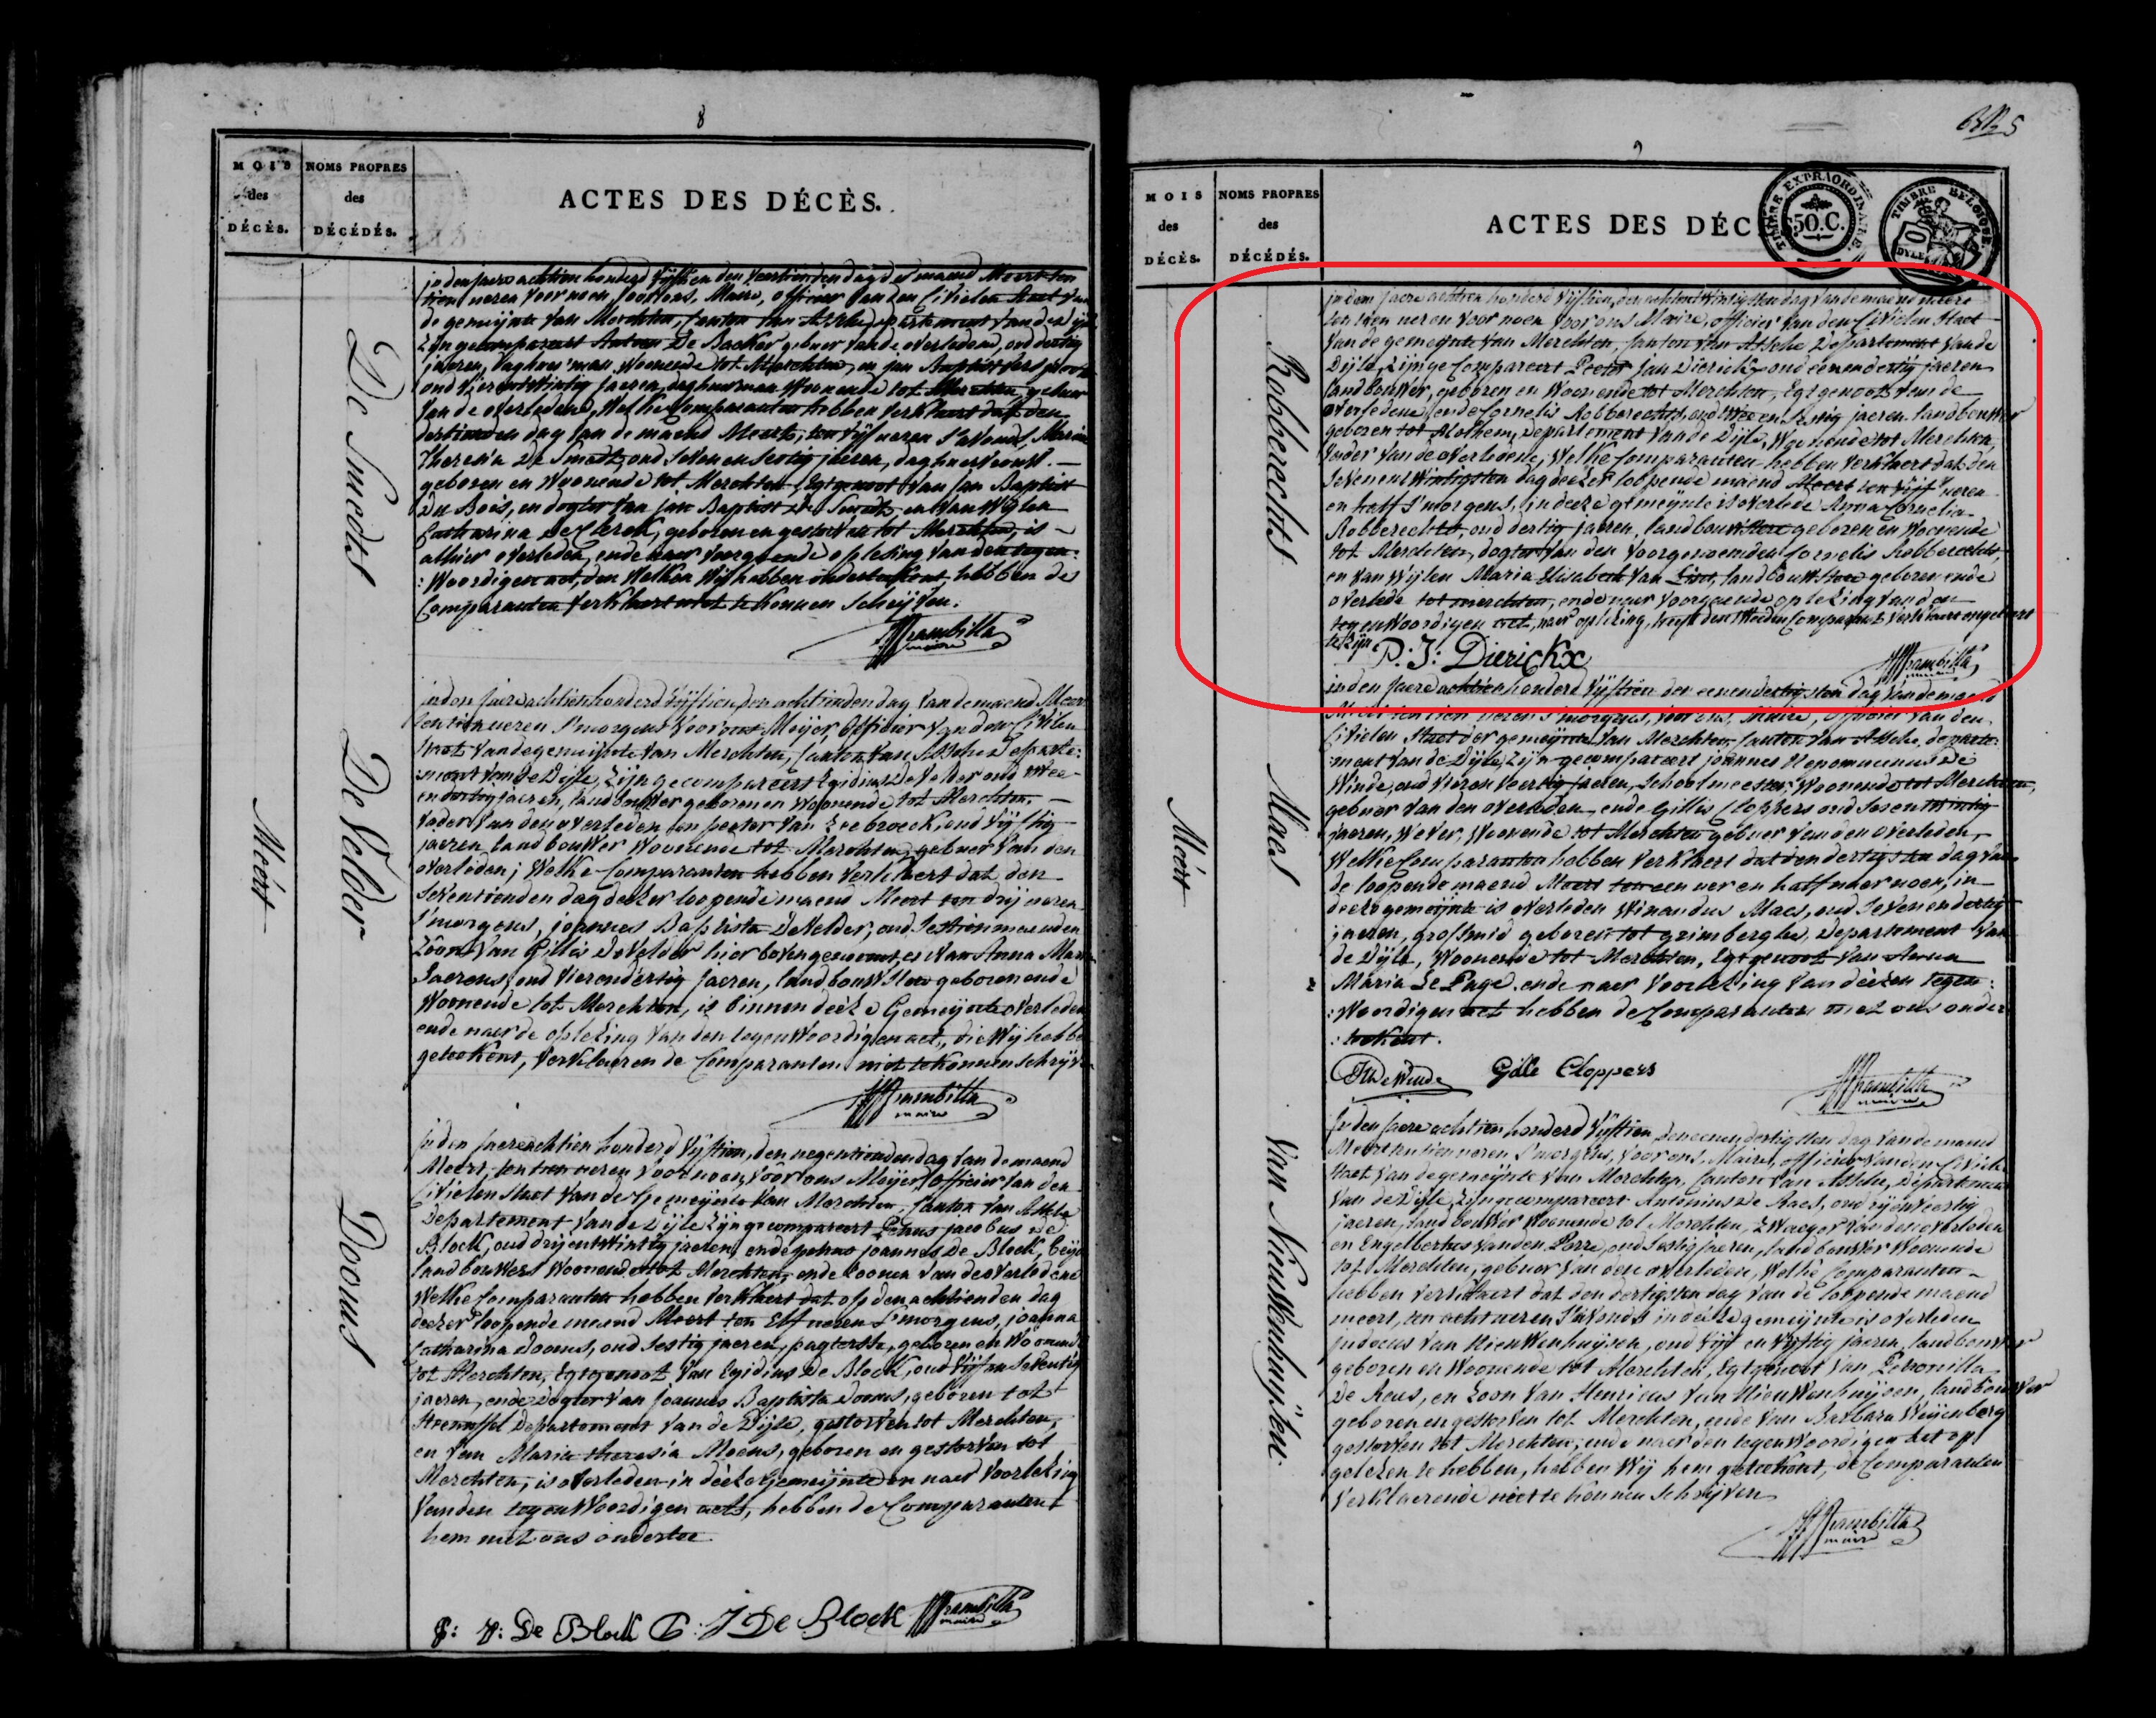 8
MOIS des DÉCÈS.
NOMS PROPRES des DÉCÉDÉS.
ACTES DES DÉCÈS.
Meért
De Smedts
in den jaere achtien honderd vijftien den veertienden dag der maend Meert ten
tien ueren voor noen, voor ons, Maire, officier van den Civielen Staet van
de gemeijnte van Merchten, Canton van Assche departement van de Dijle
zijn gecompareert De Backer gebuer van de overledene, oud dertig
jaeren, daghuerman woonende tot Merchten, en jan Baptist
oud vierentwintig jaeren, daghuerman woonende tot Merchten, gebuer
van de overledene, welke Comparanten hebben verklaert dat den
dertienden dag van de maend Meert, ten vijf ueren s'avonds, Maria
Theresia De Smedts, oud seven en sestig jaeren, daghuersvrouw
geboren en woonende tot Merchten, Egtgenoot van Jan Baptist
Du Bois, en dogter van jan Baptist De Smedts en van wijlen
Catharina De Clerck, geboren en gestorven tot Merchten, is
alhier overleden, ende naer voorgaende oplesing van den tegen:
:woordigen act, den welken wij hebben onderteekent, hebben de
Comparanten verklaert niet te konnen schrijven.
maire
De Velder
in den jaere achtien honderd vijftien den achtienden dag van de maend Meert
ten tien ueren s'morgens voor ons Meijer, officier van den Civilen
Staet van de gemeijnte van Merchten, Canton van Assche Departe:
:ment van de Dijle, zijn gecompareert Egidius De Velder oud twee
en dertig jaeren, landbouwer geboren en woonende tot Merchten,
vader van den overleden, en peeter van Zeebroeck, oud vijftig
jaeren landbouwer woonende tot Merchten, gebuer van den
overleden; welke Comparanten hebben verklaert dat den
seventienden dag deeser loopende maend Meert ten drij ueren
s'morgens, joannes Baptista De Velder, oud sestien maenden
zoone van Gillis De Velder hier boven genoemt, en van Anna Maria
Saerens, oud vierendertig jaeren, landbouwstere geboren ende
woonende tot Merchten, is binnen deese Gemeijnte overleden
ende naer de oplesing van den tegenwoordigen act, die wij hebben
geteekent, verklaeren de Comparanten niet te konnen schrijven
maire
Dooms
in den jaere achtien honderd vijftien, den negentienden dag van de maend
Meert, ten tien ueren voor noen, voor ons Meijer, officier van den
Civielen Staet van de Gemeijnte van Merchten, Canton van Assche
Departement van de Dijle zijn gecompareert Petrus jacobus De
Block, oud drijentwintig jaeren, ende petrus joannes De Block, beijde
landbouwers woonende tot Merchten, ende zoonen van de overledene
welke Comparanten hebben verklaert dat op den achtienden dag
deezer loopende maend Meert ten Elf ueren s'morgens, joanna
Catharina Dooms, oud sestig jaeren, pagtersse, geboren en woonende
tot Merchten, Egtgenoot van Egidius De Block, oud vijf en seventig
jaeren, ende Dogter van joannes Baptista Dooms, geboren tot
Departement van de Dijle, gestorven tot Merchten,
en van Maria theresia Moens, geboren en gestorven tot
Merchten, is overleden in deeze Gemeijnte en naer voorlesing
van den tegenwoordigen act, hebben de Comparanten
hem met ons ondertee
De Block P: J De Block maire
9
MOIS des DÉCÈS.
NOMS PROPRES des DÉCÉDÉS.
ACTES DES DÉC
TIMBRE EXTRAORDINAIRE.
50.C.
TIMBRE BELGIQUE.
DYLE
Meért
Robberechts
in den jaere achtien honderd vijftien, den achtentwintigsten dag van de maend meert
ten tien ueren voor noen voor ons Maire, officier van den Civielen Staet
van de gemeijnte van Merchten, Canton van Assche Departement van de
Dijle, zijn gecompareert Peeter Jan Dierickx oud eenendertig jaeren
landbouwer, geboren en woonende tot Merchten, Egtgenoot van de
overledene, ende Cornelis Robberechts, oud twee en sestig jaeren landbouwer
geboren tot Molhem, departement van de Dijle, woonende tot Merchten,
vader van de overledene, welke Comparanten hebben verklaert dat den
sevenentwintigsten dag deezer loopende maend Meert ten vijf ueren
en half s'morgens, in deeze gemeijnte is overlede Anna Cornelia
Robberechts, oud dertig jaeren, landbouwstere geboren en woonende
tot Merchten, dogter van den voorgenoemden Cornelis Robberechts
en van wijlen Maria Elisabeth van Lint, landbouwstere geboren ende
overlede tot merchten, ende naer voorgaende oplezing van den
tegenwoordigen act, naer oplezing, heeft den tweeden Comparant verklaert ongeleert
te zijn
P: J: Dierickx
maire
Maes
in den jaere achtien honderd vijftien den eenendertigsten dag van de maend
Meert ten tien ueren s'morgens, voor ons, Maire, officier van den
Civielen Staet der gemeijnte van Merchten, Canton van Assche, departe:
:ment van de Dijle, zijn gecompareert joannes Nepomucenus De
Winde, oud vierenveertig jaeren, schoolmeester, woonende tot Merchten,
gebuer van den overleden, ende Gillis Cloppers oud seventwintig
jaeren, wever, woonende tot Merchten gebuer van den overleden,
welke Comparanten hebben verklaert dat den dertigsten dag van
de loopende maend Meert ten een uer en half naer noen, in
deeze gemeijnte is overleden Winandus Maes, oud sevenendertig
jaeren, grofsmid geboren tot grimberghe, Departement van
de Dijle, woonende tot Merchten, Egtgenoot van Anna
Maria Le Page, ende naer voorlesing van deezen tegen:
:woordigen act hebben de Comparanten met ons onder
:teekent.
De Winde Gille Cloppers
maire
Van Nieuwenhuijsen.
in den jaere achtien honderd vijftien den eenendertigsten dag van de maend
Meert ten tien ueren s'morgens, voor ons, Maire, officier van den Civielen
Staet van de gemeijnte van Merchten, Canton van Assche, Departement
van de Dijle, zijn gecompareert Antonius De Raes, oud veertig
jaeren, landbouwer woonende tot Merchten, zwaeger van den overleden
en Engelbertus Vanden Perre, oud sestig jaeren, landbouwer woonende
tot Merchten, gebuer van den overleden, welke Comparanten
hebben verklaert dat den dertigsten dag van de loopende maend
meert, ten acht ueren s'avonds in deeze gemeijnte is overleden
judocus van Nieuwenhuijsen, oud vijf en vijftig jaeren, landbouwer
geboren en woonende tot Merchten, Egtgenoot van Petronilla
De Raes, en zoon van Henricus van Nieuwenhuijsen, landbouwer
geboren en gestorven tot Merchten, ende van Barbara Weijenberg
gestorven tot Merchten; ende naer den tegenwoordigen act op
gelezen te hebben, hebben wij hem geteekent, de Comparanten
verklaerende niet te konnen schrijven
maire